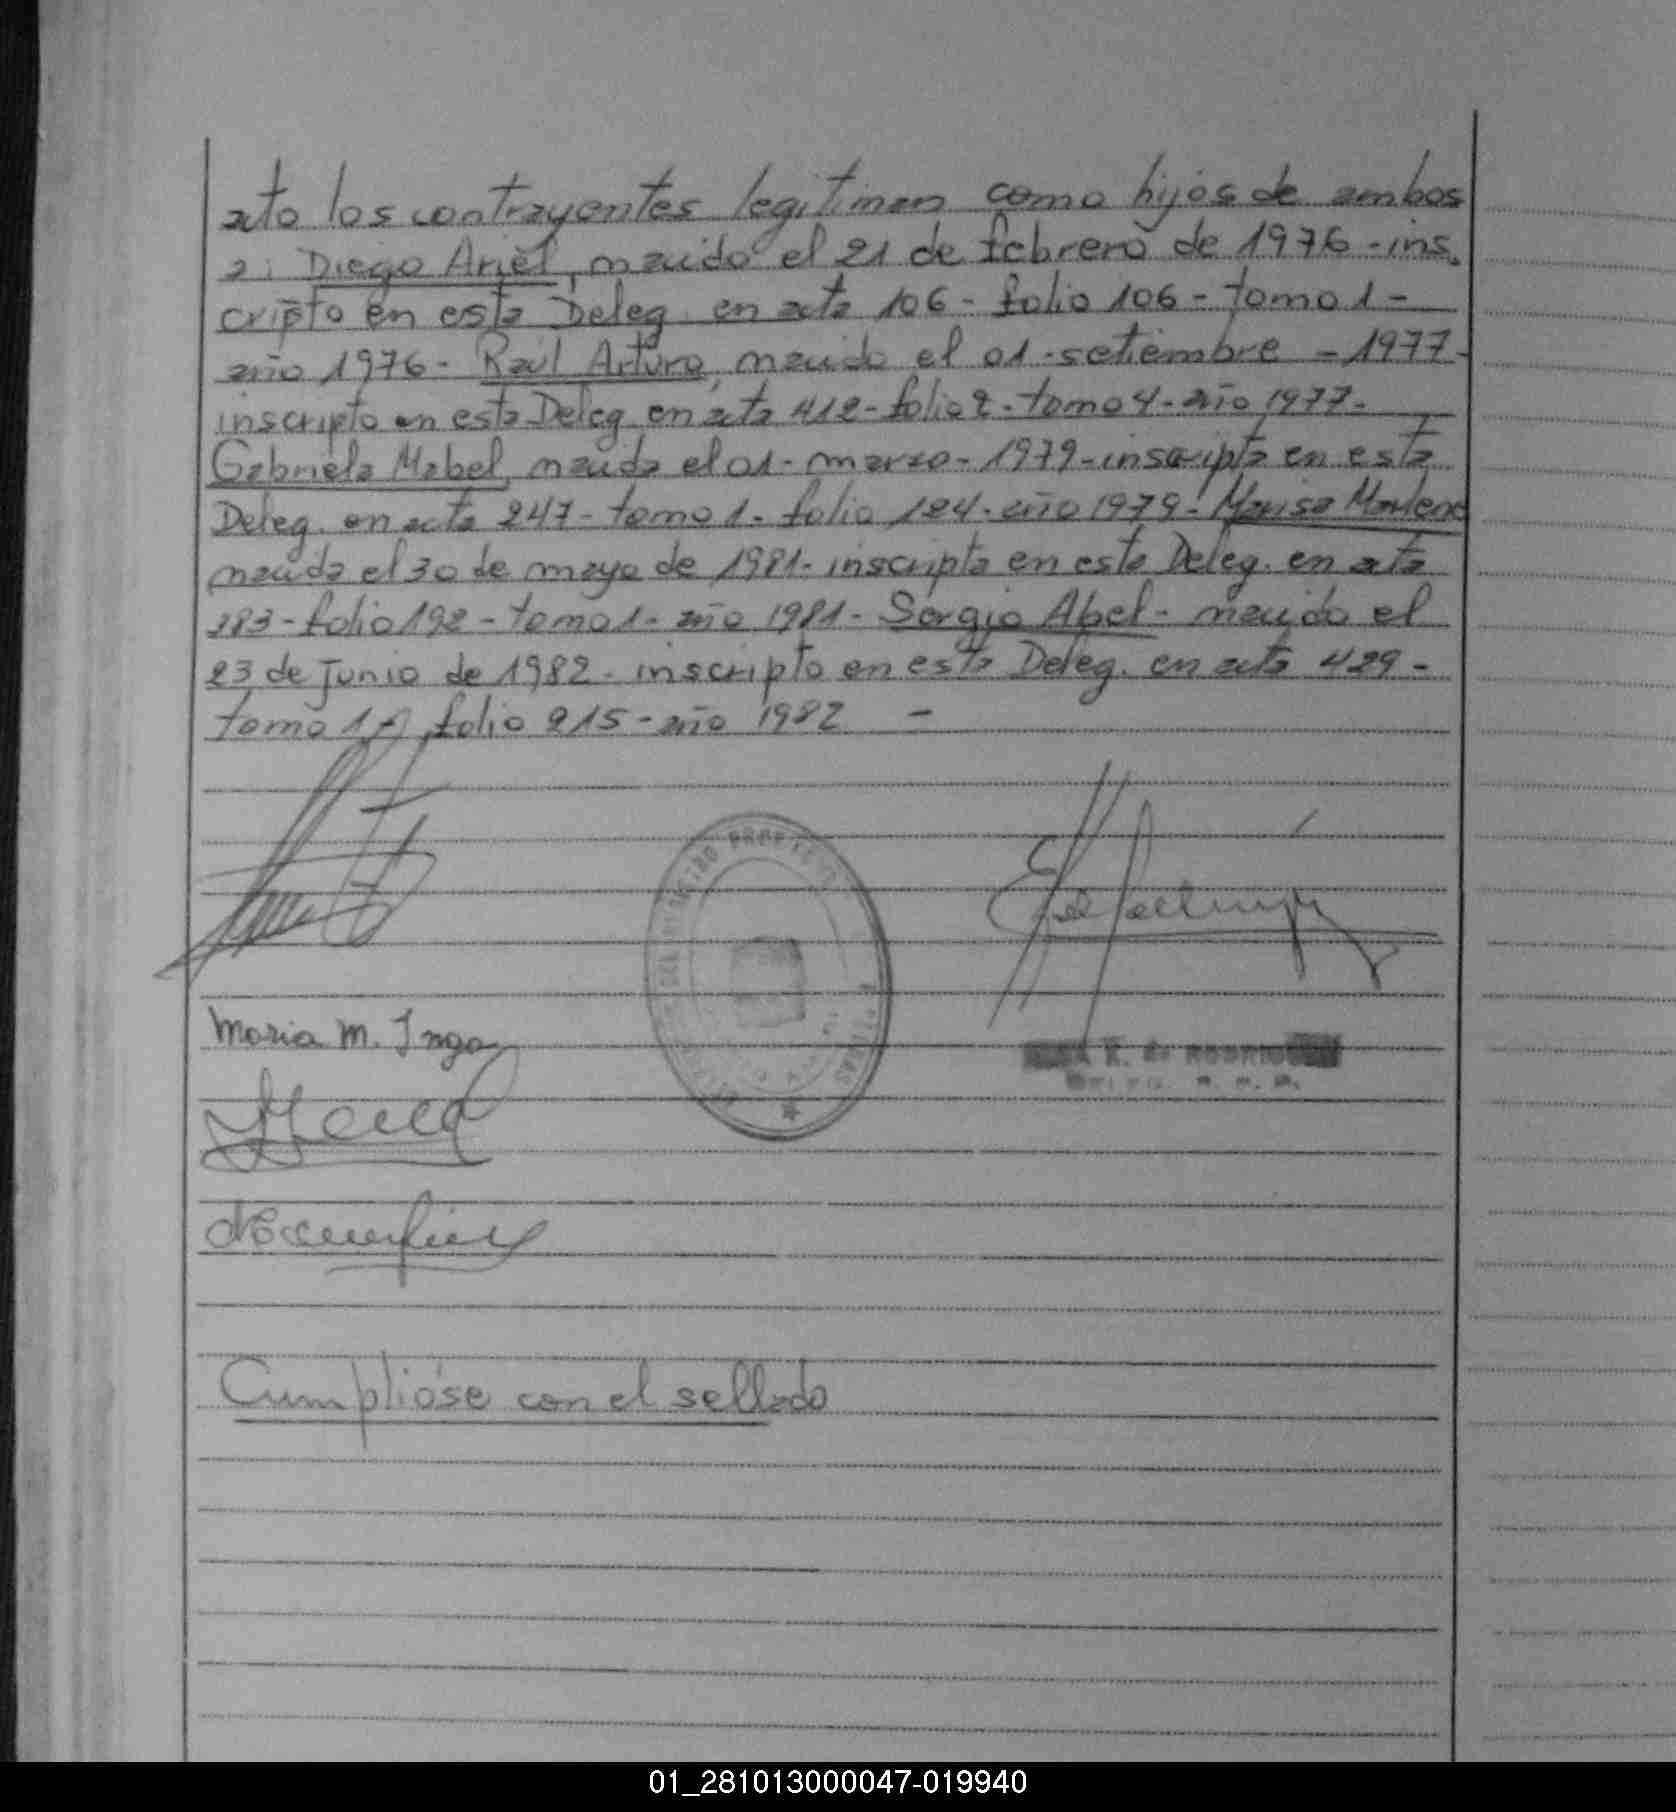 acto los contrayentes legitiman como hijos de ambos
a: Diego Ariel, nacido el 21 de febrero de 1976 - ins.
cripto en esta Deleg. en acta 106 - folio 106 - tomo 1 -
año 1976 - Raúl Arturo, nacido el 01 - setiembre - 1977 -
inscripto en esta Deleg. en acta 412 - folio 2 - tomo 4 - año 1977 -
Gabriela Mabel, nacida el 01 - marzo - 1979 - inscripta en esta
Deleg. en acta 247 - tomo 1 - folio 124 - año 1979 - Marisa Marlene
nacida el 30 de mayo de 1981 - inscripta en esta Deleg. en acta
383 - folio 192 - tomo 1 - año 1981 - Sergio Abel - nacido el
23 de junio de 1982 - inscripto en esta Deleg. en acta 429 -
tomo 1 A folio 215 - año 1982 -
Maria M. Inga
Cumplióse con el sellado
01_281013000047-019940